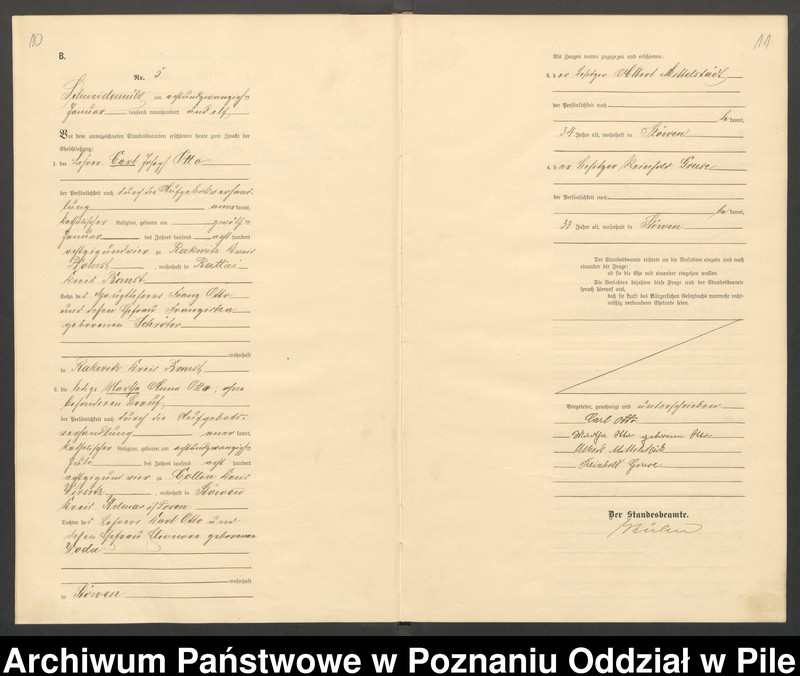 10
B.
Nr. 5
Schneidemühl, am achtundzwanzigsten
Januar tausend neunhundert und elf.
Vor dem unterzeichneten Standesbeamten erschienen heute zum Zwecke der
Eheschließung:
1. der Lehrer Carl Josef Otto
der Persönlichkeit nach durch die Aufgebotsverhand-
lung anerkannt,
katholischer Religion, geboren am zwölften
Januar des Jahres tausend acht hundert
achtzigundvier zu Rakwitz Kreis
Bomst, wohnhaft in Rattai
Kreis Bomst
Sohn des Otto
und dessen Ehefrau
geborenen Schröter
wohnhaft
in Rakwitz Kreis Bomst
2. die ledige Martha Anna Otto, ohne
besonderen Beruf,
der Persönlichkeit nach durch die Aufgebots-
verhandlung anerkannt,
katholischer Religion, geboren am achtundzwanzigsten
des Jahres tausend acht hundert
achtzigundvier zu Kreis
Wirsitz, wohnhaft in Stöwen
Kreis Kolmar i/Posen
Tochter des Lehrers Karl Otto und
dessen Ehefrau geborenen
Woda
wohnhaft
in Stöwen
11
Als Zeugen waren zugezogen und erschienen:
3. der Besitzer Albert Mittelstädt
der Persönlichkeit nach
bekannt,
34 Jahre alt, wohnhaft in Stöwen
4. der Besitzer Reinhold
der Persönlichkeit nach
bekannt,
33 Jahre alt, wohnhaft in Stöwen
Der Standesbeamte richtete an die Verlobten einzeln und nach
einander die Frage:
ob sie die Ehe mit einander eingehen wollen.
Die Verlobten bejahten diese Frage und der Standesbeamte
sprach hierauf aus,
daß sie kraft des Bürgerlichen Gesetzbuchs nunmehr recht-
mäßig verbundene Eheleute seien.
Vorgelesen, genehmigt und unterschrieben
Carl Otto
Martha Otto geborene Otto
Albert Mittelstädt
Reinhold
Der Standesbeamte.
Archiwum Państwowe w Poznaniu Oddział w Pile